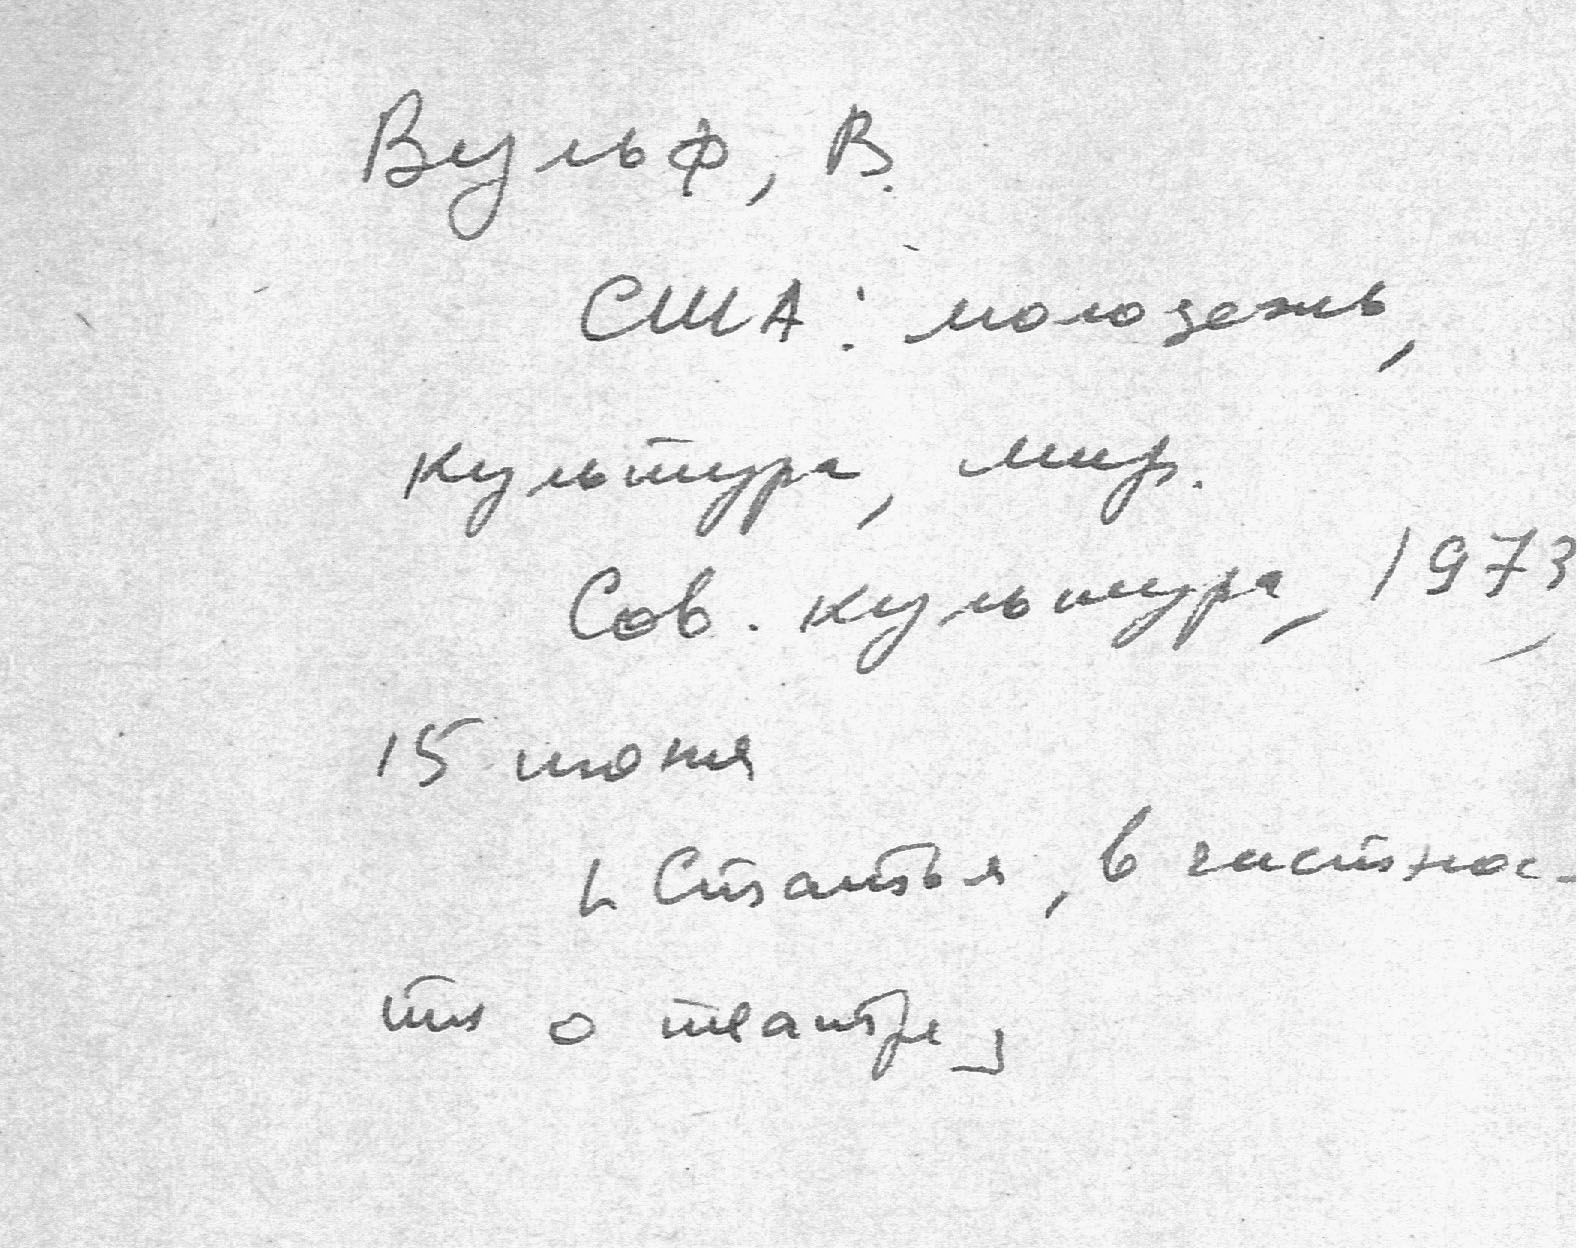 Вульф, В.
США: молодежь,
культура, мир.
Сов. культура, 1973,
15 июня
[Статья, в частнос-
ти о театре]